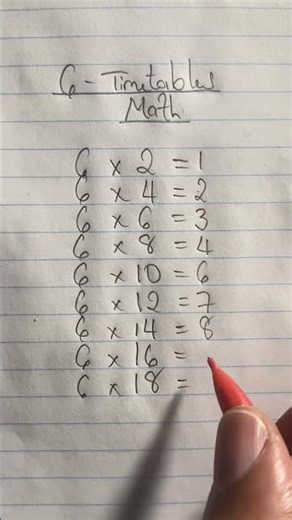 6 - Timetables
Math
6 × 2 = 1
6 × 4 = 2
6 × 6 = 3
6 × 8 = 4
6 × 10 = 6
6 × 12 = 7
6 × 14 = 8
6 × 16 =
6 × 18 =